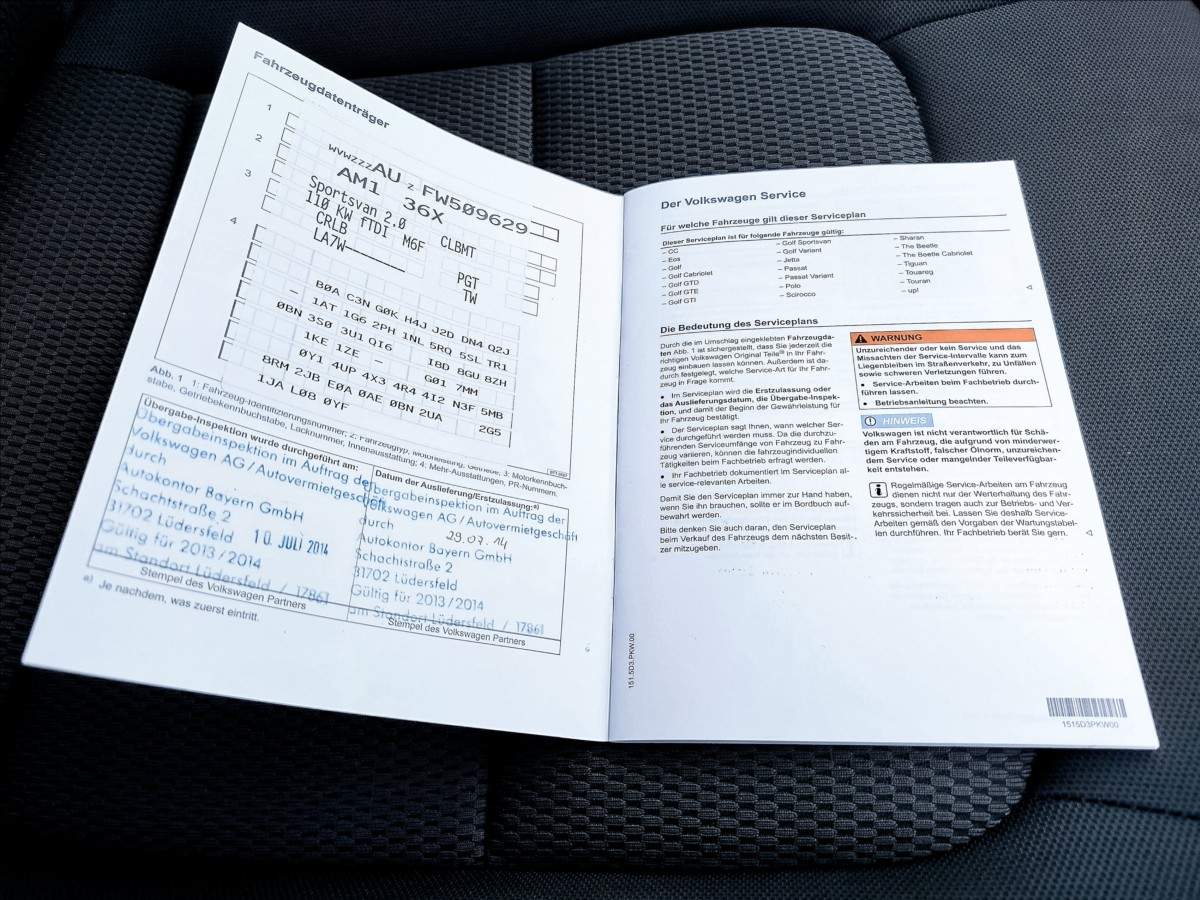 Fahrzeugdatenträger
1
WVWZZZAU Z FW509629
2
AM1 36X
Sportsvan 2.0
110 KW fTDI M6F CLBMT
3
CRLB PGT
LA7W TW
4
B0A C3N G0K H4J J2D DN4 Q2J
1AT 1G6 2PH 1NL 5RQ 5SL TR1
0BN 3S0 3U1 QI6 I8D 8GU 8ZH
1KE 1ZE G01 7MM
0Y1 4UP 4X3 4R4 4I2 N3F 5MB
8RM 2JB E0A 0AE 0BN 2UA 2G5
1JA L08 0YF
Abb. 1 1: Fahrzeug-Identifizierungsnummer; 2: Fahrzeugtyp, Motorleistung, Getriebe; 3: Motorkennbuch-
stabe, Getriebekennbuchstabe, Lacknummer, Innenausstattung; 4: Mehr-Ausstattungen, PR-Nummern.
Übergabe-Inspektion wurde durchgeführt am:
Übergabeinspektion im Auftrag der
Volkswagen AG / Autovermietgeschäft
durch
Autokontor Bayern GmbH
Schachtstraße 2
31702 Lüdersfeld 10. JULI 2014
Gültig für 2013/2014
am Standort Lüdersfeld / 17861
Stempel des Volkswagen Partners
Datum der Auslieferung/Erstzulassung:a)
Übergabeinspektion im Auftrag der
Volkswagen AG / Autovermietgeschäft
durch 29.07.14
Autokontor Bayern GmbH
Schachtstraße 2
31702 Lüdersfeld
Gültig für 2013/2014
am Standort Lüdersfeld / 17861
Stempel des Volkswagen Partners
a) Je nachdem, was zuerst eintritt.
Der Volkswagen Service
Für welche Fahrzeuge gilt dieser Serviceplan
Dieser Serviceplan ist für folgende Fahrzeuge gültig:
– CC
– Eos
– Golf
– Golf Cabriolet
– Golf GTD
– Golf GTE
– Golf GTI
– Golf Sportsvan
– Golf Variant
– Jetta
– Passat
– Passat Variant
– Polo
– Scirocco
– Sharan
– The Beetle
– The Beetle Cabriolet
– Tiguan
– Touareg
– Touran
– up!
Die Bedeutung des Serviceplans
Durch die im Umschlag eingeklebten Fahrzeugda-
ten Abb. 1 ist sichergestellt, dass Sie jederzeit die
richtigen Volkswagen Original Teile® in Ihr Fahr-
zeug einbauen lassen können. Außerdem ist da-
durch festgelegt, welche Service-Art für Ihr Fahr-
zeug in Frage kommt.
• Im Serviceplan wird die Erstzulassung oder
das Auslieferungsdatum, die Übergabe-Inspek-
tion, und damit der Beginn der Gewährleistung für
Ihr Fahrzeug bestätigt.
• Der Serviceplan sagt Ihnen, wann welcher Ser-
vice durchgeführt werden muss. Da die durchzu-
führenden Serviceumfänge von Fahrzeug zu Fahr-
zeug variieren, können die fahrzeugindividuellen
Tätigkeiten beim Fachbetrieb erfragt werden.
• Ihr Fachbetrieb dokumentiert im Serviceplan al-
le service-relevanten Arbeiten.
Damit Sie den Serviceplan immer zur Hand haben,
wenn Sie ihn brauchen, sollte er im Bordbuch auf-
bewahrt werden.
Bitte denken Sie auch daran, den Serviceplan
beim Verkauf des Fahrzeugs dem nächsten Besit-
zer mitzugeben.
WARNUNG
Unzureichender oder kein Service und das
Missachten der Service-Intervalle kann zum
Liegenbleiben im Straßenverkehr, zu Unfällen
und schweren Verletzungen führen.
• Service-Arbeiten beim Fachbetrieb durch-
führen lassen.
• Betriebsanleitung beachten.
HINWEIS
Volkswagen ist nicht verantwortlich für Schä-
den am Fahrzeug, die aufgrund von minderwer-
tigem Kraftstoff, falscher Ölnorm, unzureichen-
dem Service oder mangelnder Teileverfügbar-
keit entstehen.
Regelmäßige Service-Arbeiten am Fahrzeug
dienen nicht nur der Werterhaltung des Fahr-
zeugs, sondern tragen auch zur Betriebs- und Ver-
kehrssicherheit bei. Lassen Sie deshalb Service-
Arbeiten gemäß den Vorgaben der Wartungstabel-
len durchführen. Ihr Fachbetrieb berät Sie gern.
151.5D3.PKW.00
1515D3PKW00